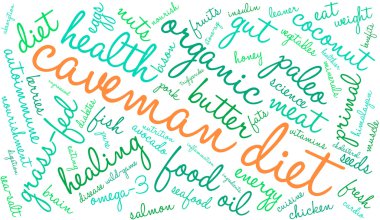 caveman diet
health
organic
gut
coconut
diet
nuts
eggs
nourish
fruits
insulin
leaner
eat
weight
vegetables
honey
bison
paleo
science
primal
himalayan
autoimmune
berries
butter
meat
pork
fats
vitamins
seeds
nourishment
grass-fed
fish
diabetes
nutrition
avocado
healing
food
oil
energy
fresh
disease
wild-game
omega-3
seafood
brain
sea-salt
salmon
cuisine
chicken